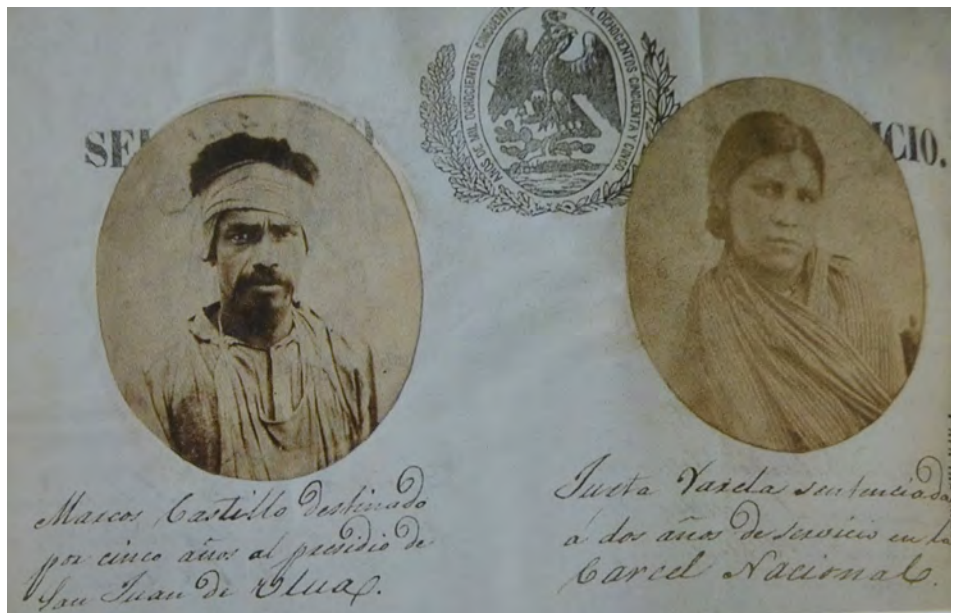 SE
CIO.
AÑOS DE MIL OCHOCIENTOS CINCUENTA OCHOCIENTOS CINCUENTA Y CINCO.
Marcos Castillo destinado
por cinco años al presidio de
San Juan de Ulua.
Justa Varela sentenciada
á dos años de servicio en la
Carcel Nacional.